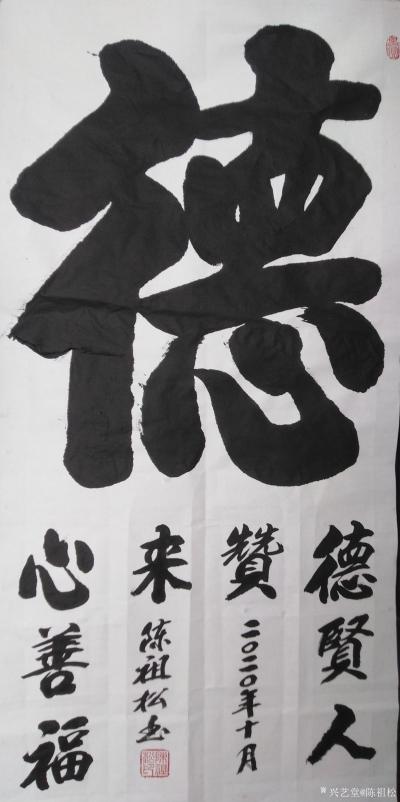 德
德賢人
贊
二〇二〇年十月
来
陈祖松书
心善福
兴艺堂@陈祖松